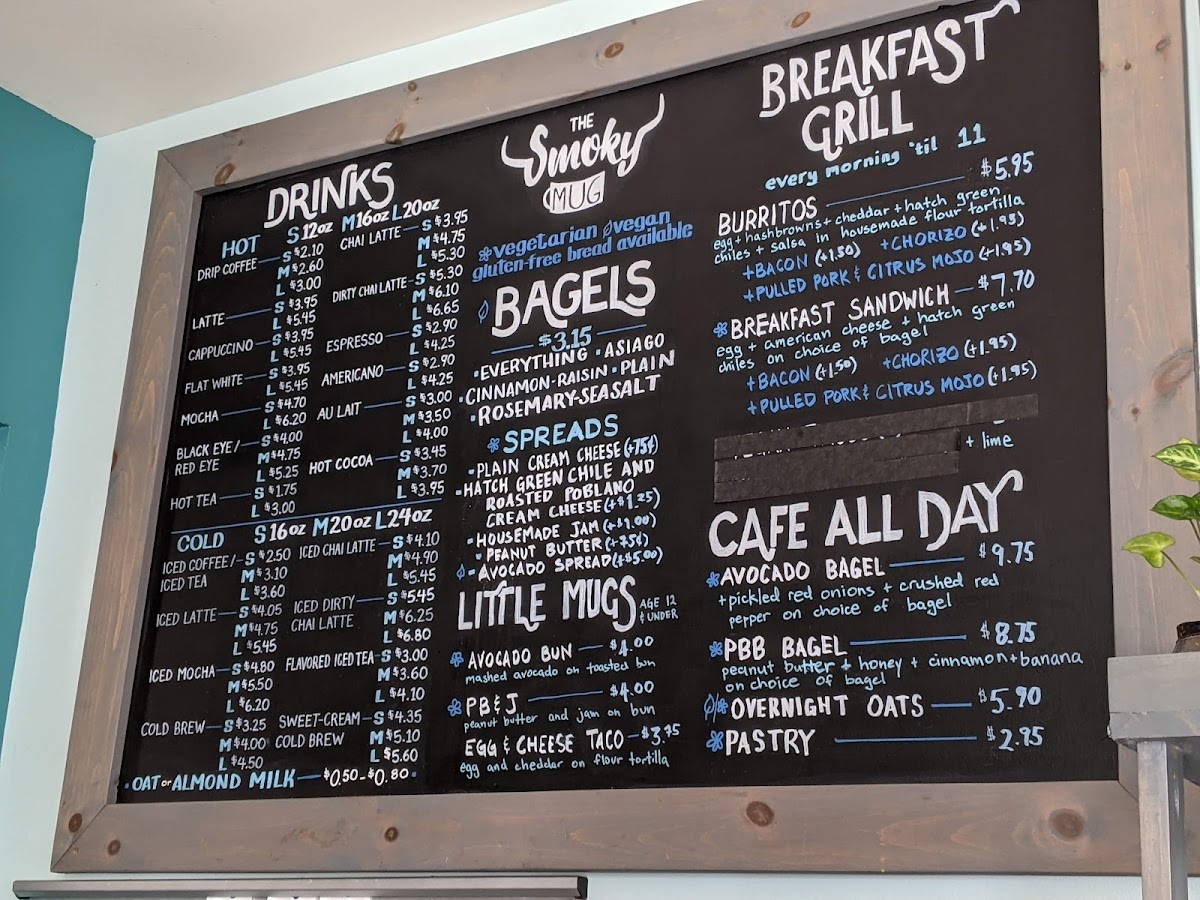 THE
Smoky
MUG
vegetarian vegan
gluten-free bread available
DRINKS
HOT S 12oz M 16oz L 20oz
DRIP COFFEE — S $2.10
M $2.60
L $3.00
LATTE — S $3.95
L $5.45
CAPPUCCINO — S $3.95
L $5.45
FLAT WHITE — S $3.95
L $5.45
MOCHA — S $4.70
L $6.20
BLACK EYE / — S $4.00
RED EYE M $4.75
L $5.25
HOT TEA — S $1.75
L $3.00
CHAI LATTE — S $3.95
M $4.75
L $5.30
DIRTY CHAI LATTE — S $5.30
M $6.10
L $6.65
ESPRESSO — S $2.90
L $4.25
AMERICANO — S $2.90
L $4.25
AU LAIT — S $3.00
M $3.50
L $4.00
HOT COCOA — S $3.45
M $3.70
L $3.95
COLD S 16oz M 20oz L 24oz
ICED COFFEE/ — S $2.50
ICED TEA M $3.10
L $3.60
ICED LATTE — S $4.05
M $4.75
L $5.45
ICED MOCHA — S $4.80
M $5.50
L $6.20
COLD BREW — S $3.25
M $4.00
L $4.50
ICED CHAI LATTE — S $4.10
M $4.90
L $5.45
ICED DIRTY — S $5.45
CHAI LATTE M $6.25
L $6.80
FLAVORED ICED TEA — S $3.00
M $3.60
L $4.10
SWEET-CREAM — S $4.35
COLD BREW M $5.10
L $5.60
• OAT or ALMOND MILK — $0.50-$0.80 •
BAGELS
— $3.15 —
• EVERYTHING • ASIAGO
• CINNAMON-RAISIN • PLAIN
• ROSEMARY-SEASALT
SPREADS
• PLAIN CREAM CHEESE (+75¢)
• HATCH GREEN CHILE AND
ROASTED POBLANO
CREAM CHEESE (+$1.25)
• HOUSEMADE JAM (+$1.00)
• PEANUT BUTTER (+75¢)
• AVOCADO SPREAD (+$5.00)
LITTLE MUGS AGE 12
& UNDER
AVOCADO BUN — $4.00
mashed avocado on toasted bun
PB & J — $4.00
peanut butter and jam on bun
EGG & CHEESE TACO — $3.75
egg and cheddar on flour tortilla
BREAKFAST
GRILL
every morning 'til 11
BURRITOS — $5.95
egg + hashbrowns + cheddar + hatch green
chiles + salsa in housemade flour tortilla
+BACON (+1.50) +CHORIZO (+1.95)
+PULLED PORK & CITRUS MOJO (+1.95)
BREAKFAST SANDWICH — $7.70
egg + american cheese + hatch green
chiles on choice of bagel
+BACON (+1.50) +CHORIZO (+1.95)
+PULLED PORK & CITRUS MOJO (+1.95)
+ lime
CAFE ALL DAY
AVOCADO BAGEL — $9.75
+pickled red onions + crushed red
pepper on choice of bagel
PBB BAGEL — $8.75
peanut butter + honey + cinnamon+banana
on choice of bagel
OVERNIGHT OATS — $5.90
PASTRY — $2.95